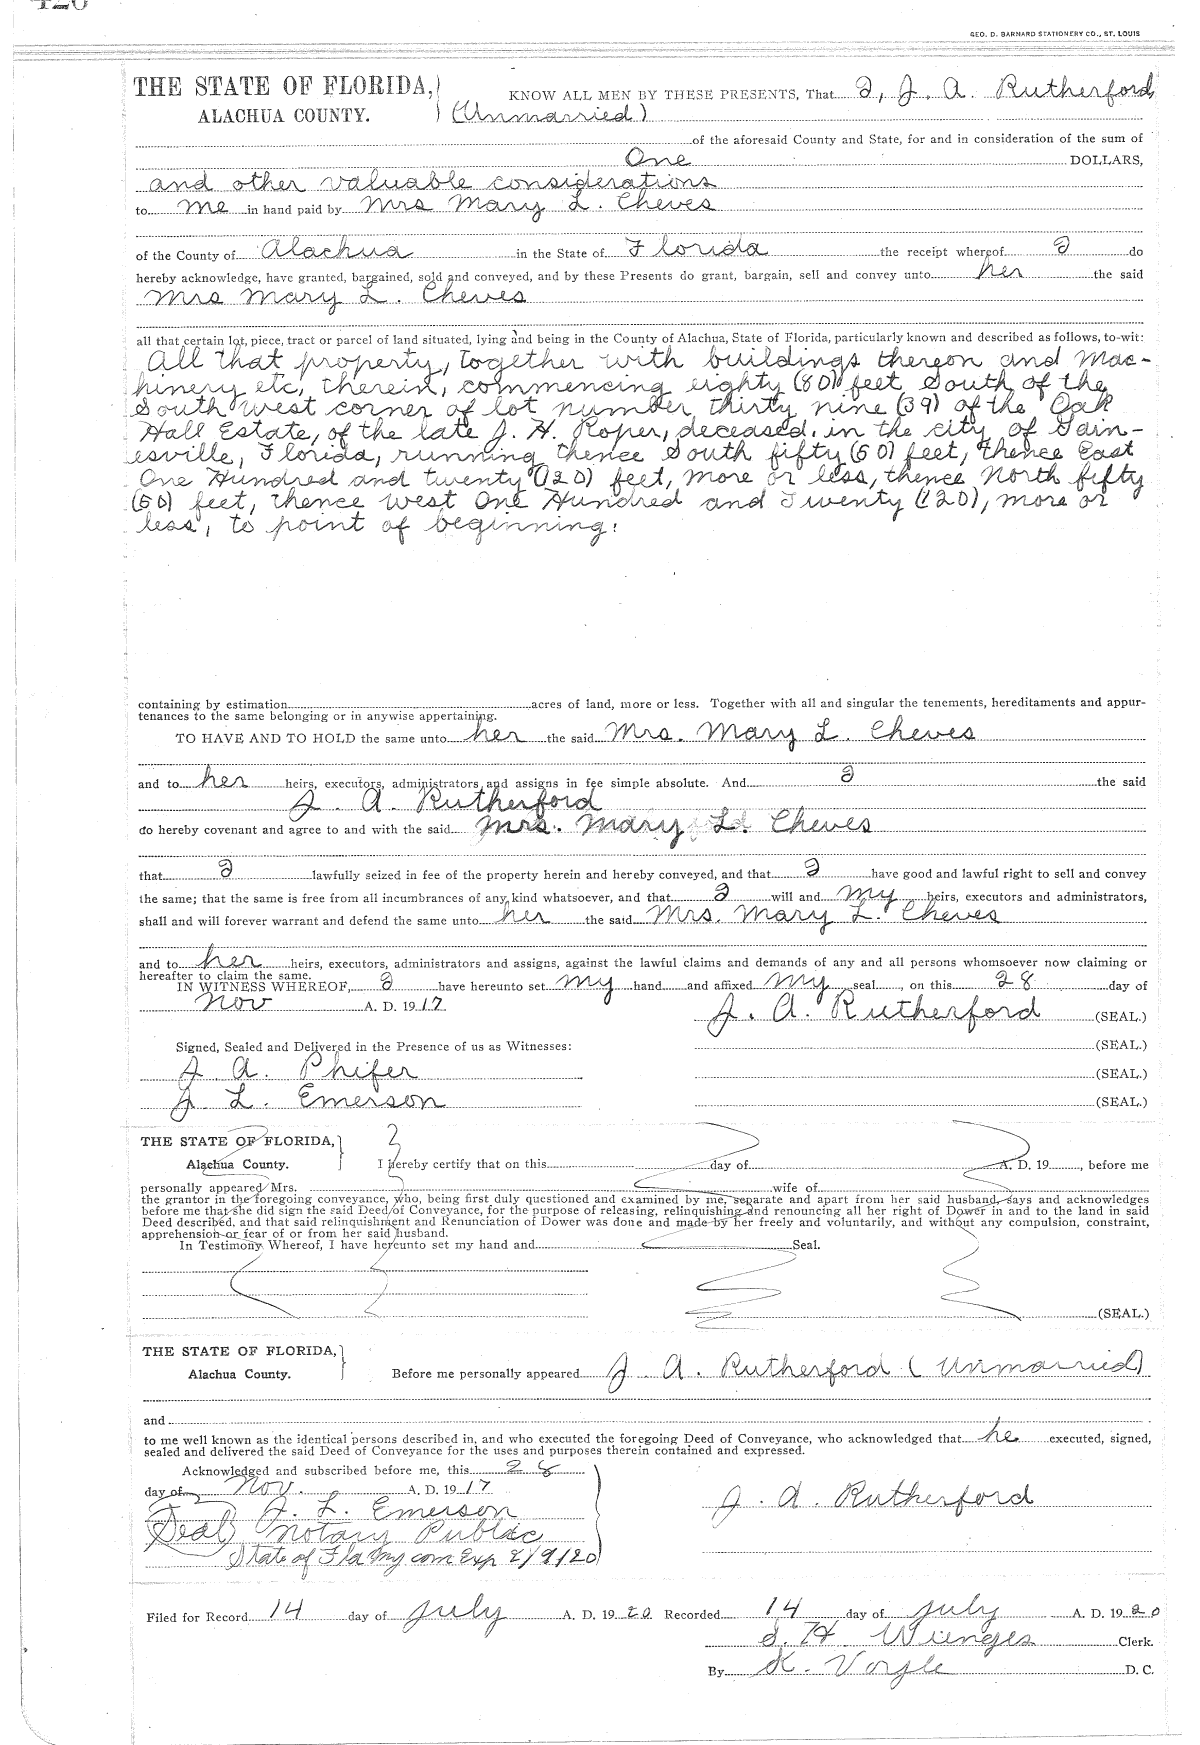 GEO. D. BARNARD STATIONERY CO., ST. LOUIS
THE STATE OF FLORIDA,
ALACHUA COUNTY.
KNOW ALL MEN BY THESE PRESENTS, That I, J. A. Rutherford
(Unmarried)
of the aforesaid County and State, for and in consideration of the sum of
One DOLLARS,
and other valuable considerations
to me in hand paid by Mrs Mary L. Cheves
of the County of Alachua in the State of Florida the receipt whereof I do
hereby acknowledge, have granted, bargained, sold and conveyed, and by these Presents do grant, bargain, sell and convey unto her the said
Mrs Mary L. Cheves
all that certain lot, piece, tract or parcel of land situated, lying and being in the County of Alachua, State of Florida, particularly known and described as follows, to-wit:
All that property, together with buildings thereon and Mac-
hinery etc, therein, commencing eighty (80) feet South of the
South west corner of lot number thirty nine (39) of the Oak
Hall Estate, of the late J. H. Roper, deceased, in the city of Gain-
esville, Florida, running thence South fifty (50) feet, thence East
One Hundred and twenty (120) feet, more or less, thence North fifty
(50) feet, thence west One Hundred and Twenty (120), more or
less, to point of beginning.
containing by estimation acres of land, more or less. Together with all and singular the tenements, hereditaments and appur-
tenances to the same belonging or in anywise appertaining.
TO HAVE AND TO HOLD the same unto her the said Mrs. Mary L. Cheves
and to her heirs, executors, administrators and assigns in fee simple absolute. And I the said
J. A. Rutherford
do hereby covenant and agree to and with the said Mrs. Mary L. Cheves
that I lawfully seized in fee of the property herein and hereby conveyed, and that I have good and lawful right to sell and convey
the same; that the same is free from all incumbrances of any kind whatsoever, and that I will and my heirs, executors and administrators,
shall and will forever warrant and defend the same unto her the said Mrs. Mary L. Cheves
and to her heirs, executors, administrators and assigns, against the lawful claims and demands of any and all persons whomsoever now claiming or
hereafter to claim the same.
IN WITNESS WHEREOF, I have hereunto set my hand and affixed my seal, on this 28 day of
Nov A. D. 1917
J. A. Rutherford (SEAL.)
Signed, Sealed and Delivered in the Presence of us as Witnesses:
(SEAL.)
J A. Phifer (SEAL.)
J L. Emerson (SEAL.)
THE STATE OF FLORIDA,
Alachua County.
I hereby certify that on this day of A. D. 19 , before me
personally appeared Mrs. wife of
the grantor in the foregoing conveyance, who, being first duly questioned and examined by me, separate and apart from her said husband, says and acknowledges
before me that she did sign the said Deed of Conveyance, for the purpose of releasing, relinquishing and renouncing all her right of Dower in and to the land in said
Deed described, and that said relinquishment and Renunciation of Dower was done and made by her freely and voluntarily, and without any compulsion, constraint,
apprehension or fear of or from her said husband.
In Testimony Whereof, I have hereunto set my hand and Seal.
(SEAL.)
THE STATE OF FLORIDA,
Alachua County.
Before me personally appeared J A. Rutherford (Unmarried)
and
to me well known as the identical persons described in, and who executed the foregoing Deed of Conveyance, who acknowledged that he executed, signed,
sealed and delivered the said Deed of Conveyance for the uses and purposes therein contained and expressed.
Acknowledged and subscribed before me, this 28
day of Nov. A. D. 1917
J. A. Rutherford
J. L. Emerson
(Seal) Notary Public
State of Fla My com Exp 2/9/20
Filed for Record 14 day of July A. D. 1920 Recorded 14 day of July A. D. 1920
S. H. Wienges Clerk.
By K. D. C.